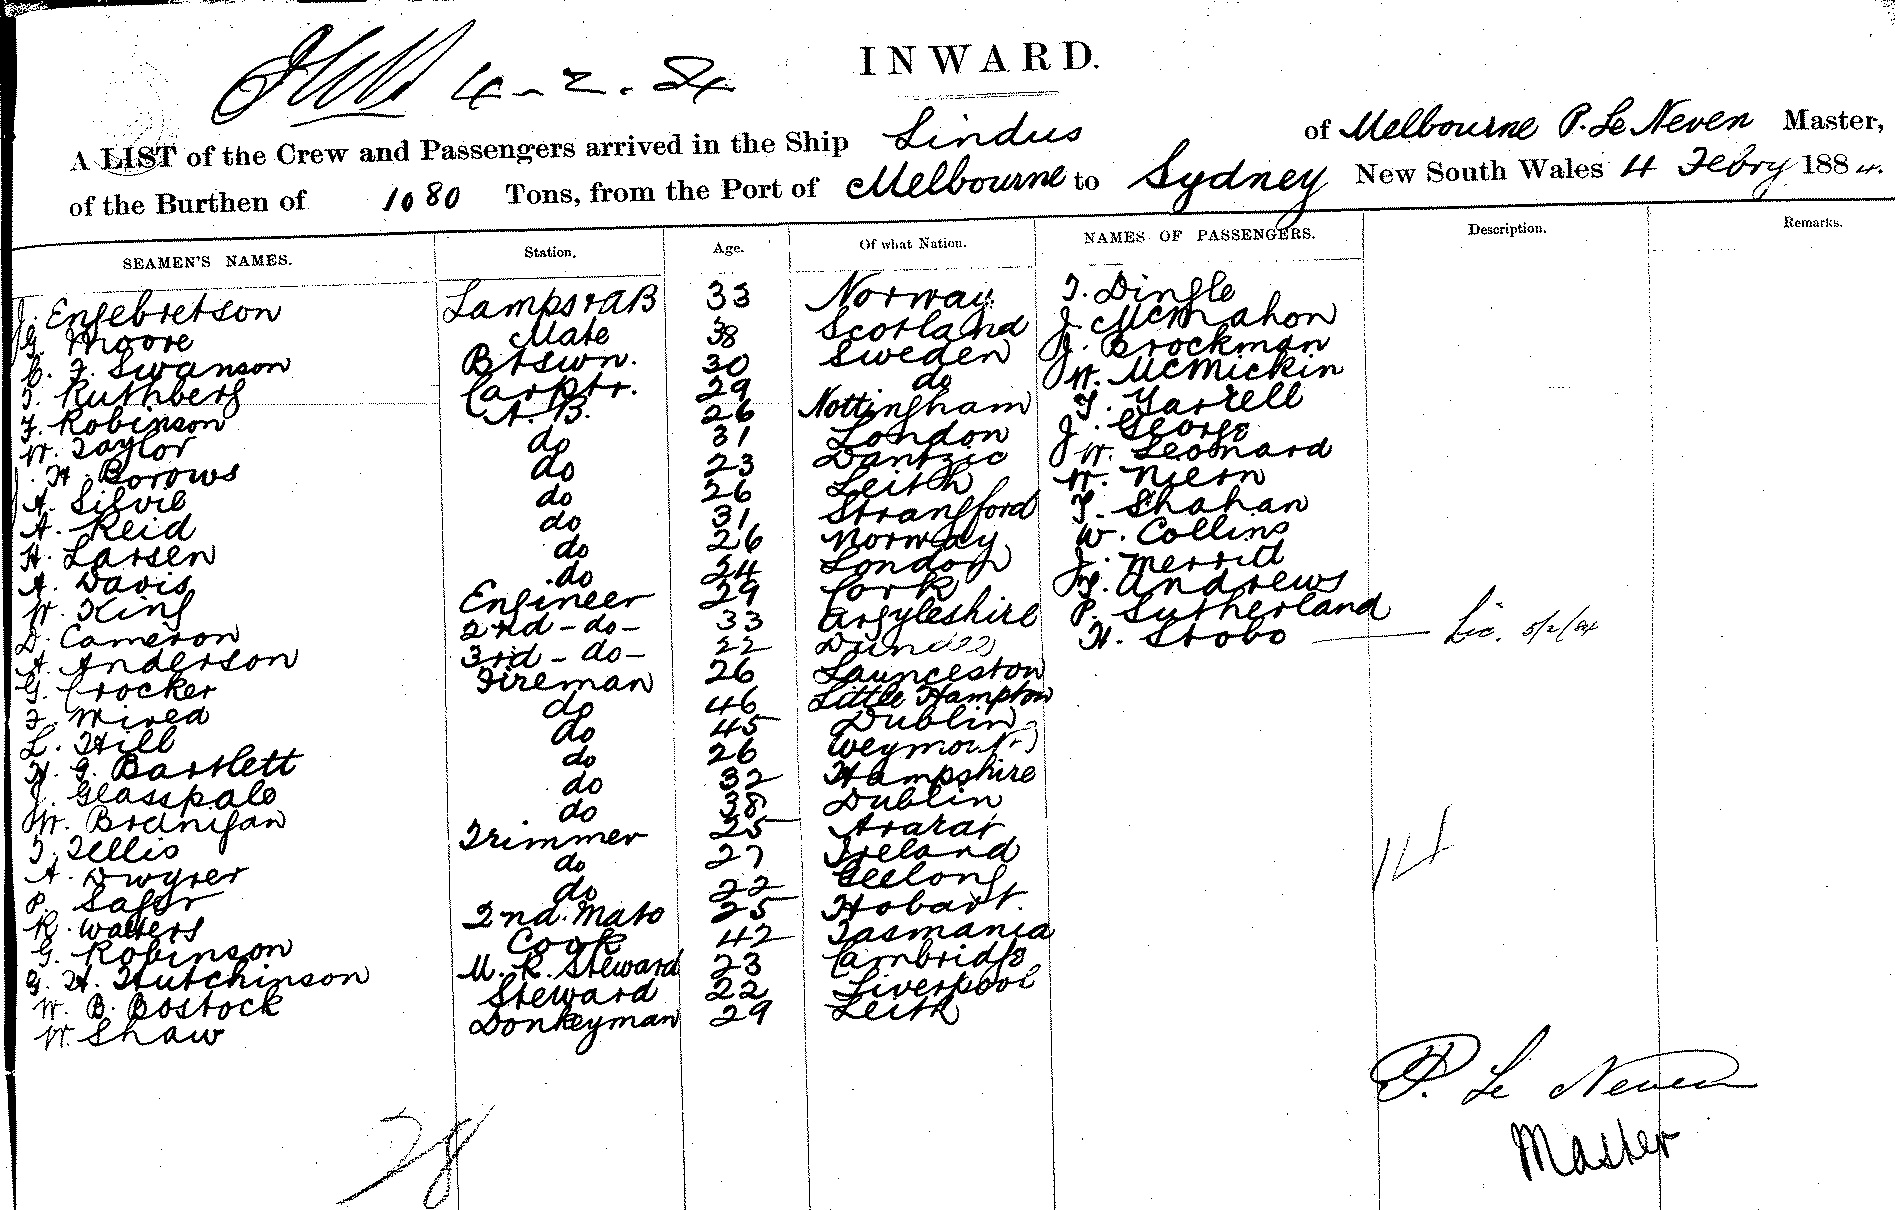 4-2.84
INWARD.
A LIST of the Crew and Passengers arrived in the Ship Lindus of Melbourne P. Le Neven Master,
of the Burthen of 1080 Tons, from the Port of Melbourne to Sydney New South Wales 4 Febry 1884.
SEAMEN'S NAMES. Station. Age. Of what Nation. NAMES OF PASSENGERS. Description. Remarks.
J. Engebretson Lamps & AB 33 Norway T. Dingle
G. Moore Mate 38 Scotland J. McMahon
C. F. Swanson Btswn. 30 Sweden J. Brockman
T. Ruthberg Carptr. 29 do W. McMickin
F. Robinson A. B. 26 Nottingham T. Farrell
W. Taylor do 31 London J. George
J. H. Borows do 23 Dantzic W. Leonard
A. Silvie do 26 Leith W. Niern
A. Reid do 31 Strangford T. Shahan
H. Larsen do 26 Norway W. Collins
A. Davis do 24 London J. Merritt
W. King Engineer 29 Cork Andrews
D. Cameron 2nd - do - 33 Argyleshire P. Sutherland
A. Anderson 3rd - do - 22 Dundee H. Strobo Lic. 5/2/84
G. Crocker Fireman 26 Launceston
F. Mired do 46 Little Hampton
L. Hill do 45 Dublin
H. G. Bartlett do 26 Weymouth
J. Glasspale do 32 Hampshire
W. Branigan do 38 Dublin
T. Tellis Trimmer 25 Ararat
A. Dwyrer do 27 Ireland
P. do 22 Geelong
R. Walters 2nd. Mate 25 Hobart.
G. Robinson Cook 42 Tasmania
G. H. Hutchinson M. R. Steward 23 Cambridge
W. B. Bostock Steward 22 Liverpool
W. Shaw Donkeyman 29 Leith
14
P. Le Neven
Master
28